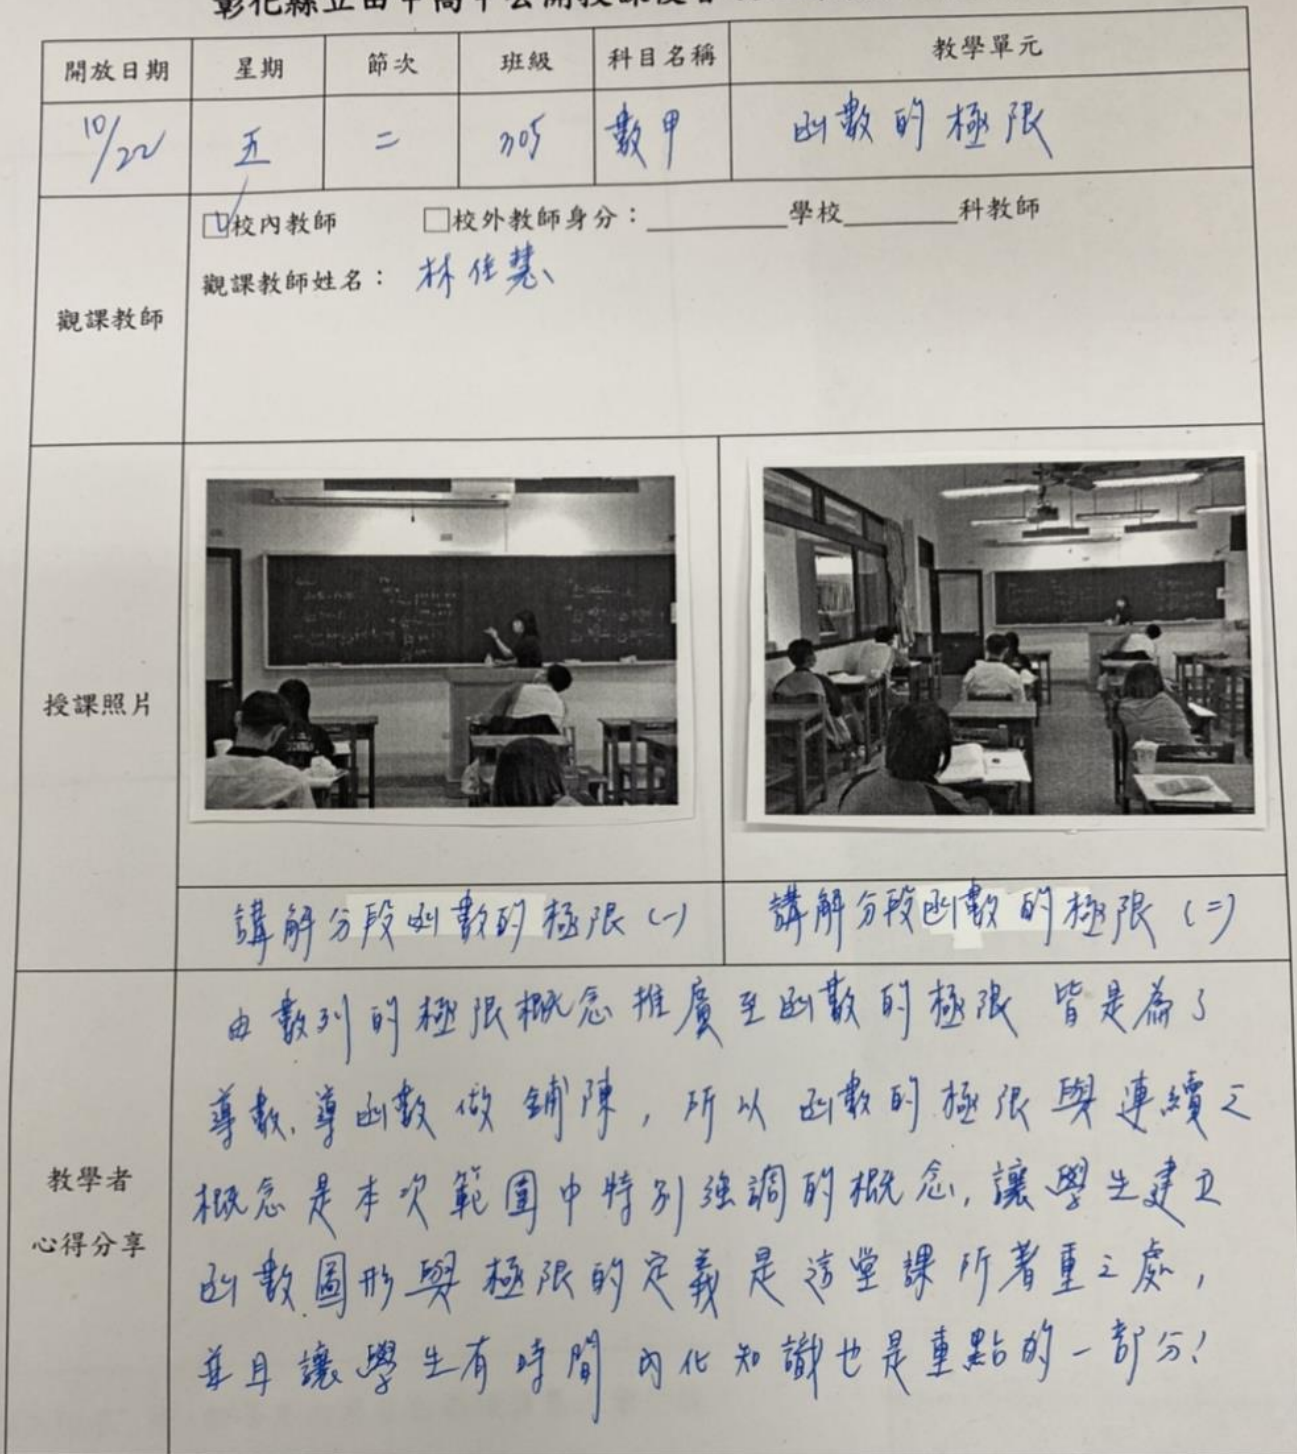 彰化縣立田中高中公開授課後
開放日期 星期 節次 班級 科目名稱 教學單元
10/22 五 二 305 數甲 函數的極限
觀課教師
□校內教師 □校外教師身分：________學校______科教師
觀課教師姓名：林佳慧
授課照片
講解分段函數的極限(一) 講解分段函數的極限(二)
教學者
心得分享
由數列的極限概念推廣至函數的極限 皆是為了
導數、導函數做鋪陳，所以函數的極限與連續之
概念是本次範圍中特別強調的概念，讓學生建立
函數圖形與極限的定義是這堂課所著重之處，
並且讓學生有時間內化知識也是重點的一部分！